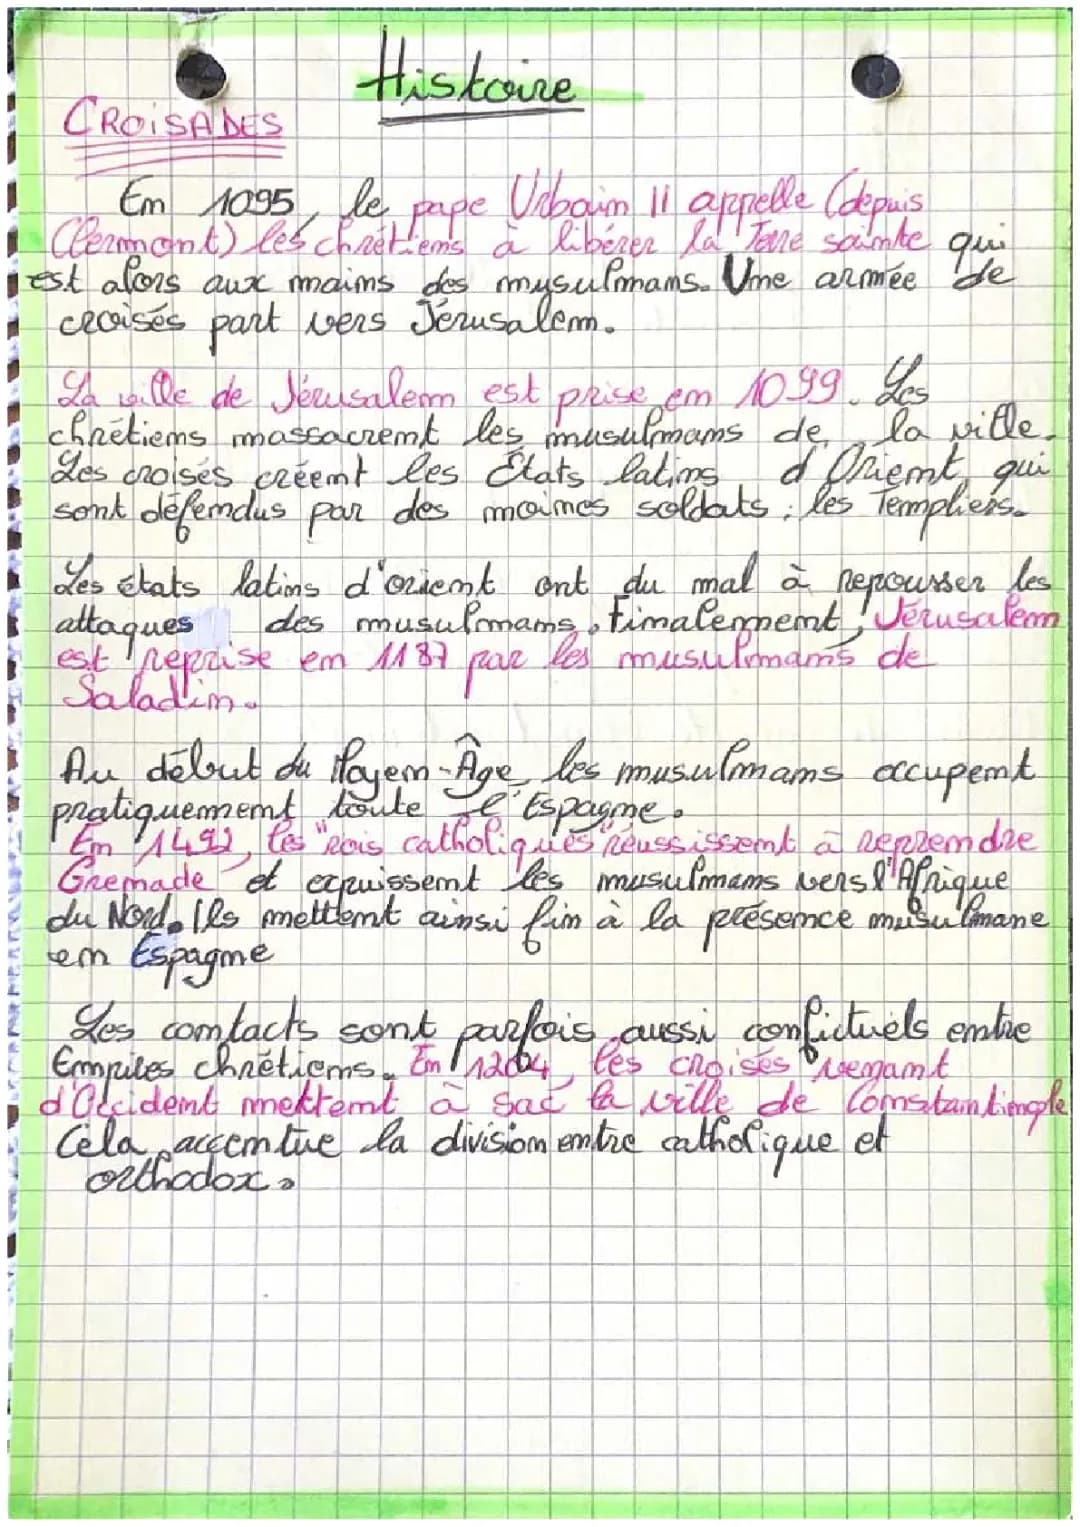 Histoire
CROISADES
En 1095, le pape Urbain II appelle (depuis
Clermont) les chrétiens à libérer la Terre sainte qui
est alors aux mains des musulmans. Une armée de
croisés part vers Jérusalem.
La ville de Jérusalem est prise en 1099. Les
chrétiens massacrent les musulmans de la ville.
Les croisés créent les États latins d'Orient, qui
sont défendus par des moines soldats : les Templiers.
Les états latins d'orient ont du mal à repousser les
attaques des musulmans. Finalement, Jérusalem
est reprise en 1187 par les musulmans de
Saladin.
Au début du Moyen-Âge les musulmans occupent
pratiquement toute l'Espagne.
En 1492, les "rois catholiques" réussissent à reprendre
Grenade et expuissent les musulmans vers l'Afrique
du Nord. Ils mettent ainsi fin à la présence musulmane
en Espagne
Les contacts sont parfois aussi confictuels entre
Empires chrétiens. En 1204, les croisés venant
d'Occident mettent à sac la ville de Constantinople
Cela accentue la division entre catholique et
orthodox.